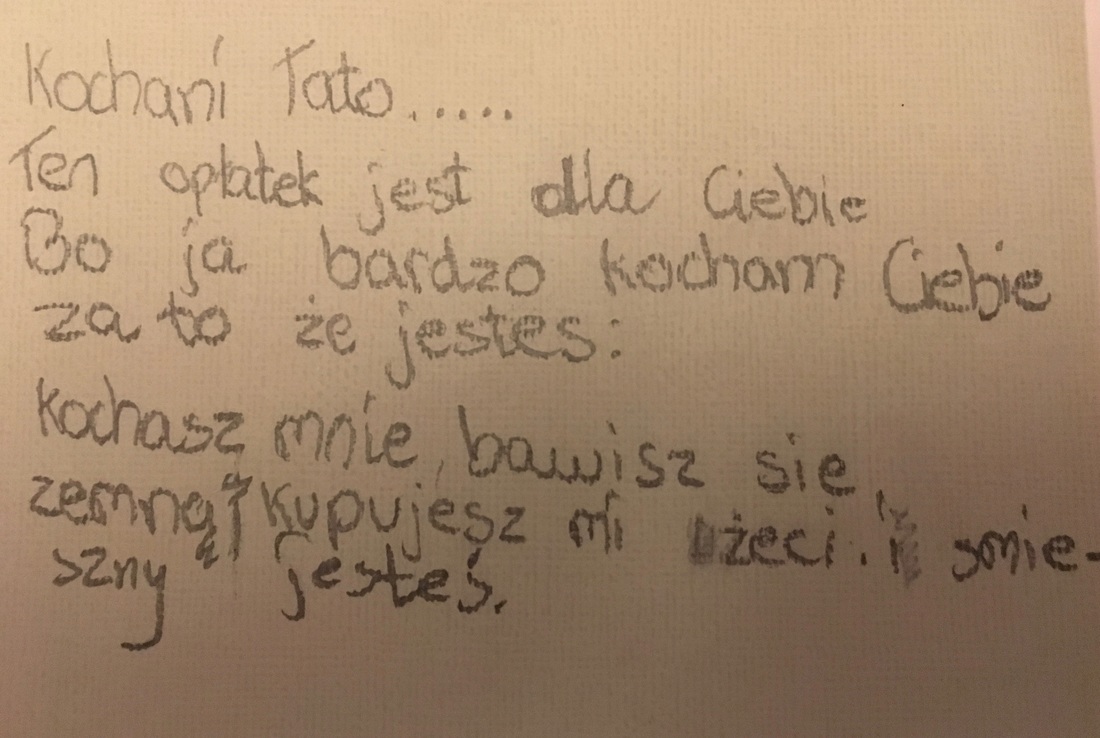 Kochani Tato.....
Ten opłatek jest dla Ciebie
Bo ja bardzo kocham Ciebie
za to że jestes:
kochasz mnie, bawisz sie
zemną, kupujesz mi żeci. i smie-
szny jesteś.